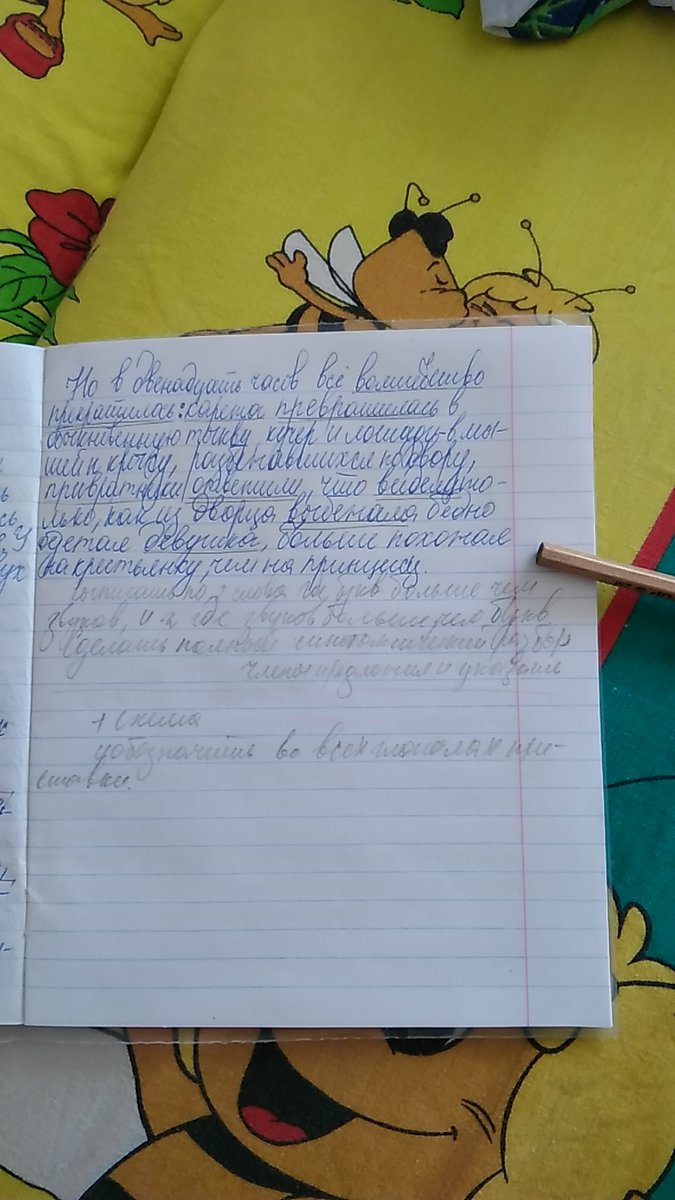 Но в двенадцать часов всё волшебство
прекратилось: карета превратилась в
обыкновенную тыкву, кучер и лошади - в мы-
шей и крысу, разбежавшихся по двору,
привратники ответили, что видели то-
лько, как из дворца выбежала бедно
одетая девушка, больше похожая
на крестьянку, чем на принцессу.
выписать по 2 слова где букв больше чем
звуков, и 2 где звуков больше чем букв
Сделать полный синтаксический разбор
члены предложения и указать
+ схема
обозначить во всех глаголах при-
ставки.